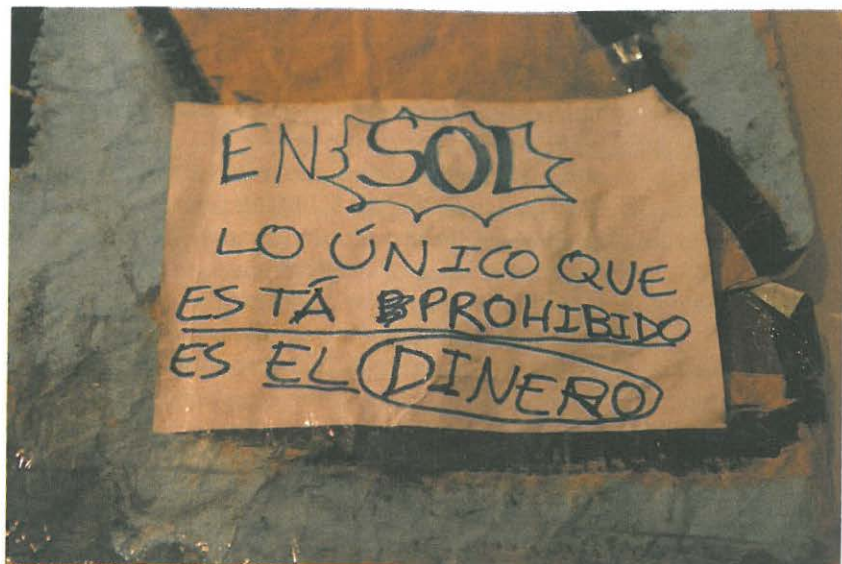 EN SOL
LO ÚNICO QUE
ESTÁ PROHIBIDO
ES EL DINERO